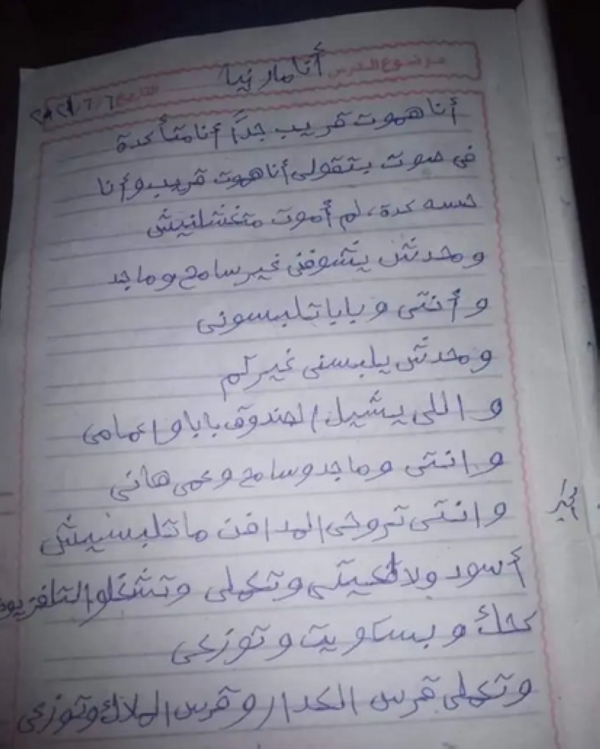 موضوع الدرس أنا مارينا
التاريخ ٦ / ٦ / ٢٠٢١
أنا هموت قريب جداً أنا متأكدة
في صوت بتقولى أنا هموت قريب وأنا
حسه كدة، لم أموت متغسلنيش
ومحدش يشوفنى غير سامح وماجد
وأنتى وبابا تلبسونى
ومحدش يلبسنى غيركم
واللى يشيل الصندوق بابا واعمامى
وانتى وماجد وسامح وعمى هانى
وانتى تروحى المدافن ماتلبسيش
أسود ولا وتعملى وتشغلو التلفزيون
كحك وبسكويت وتوزعى
وتعملى قرس الكدار وقرس الملاك وتوزعى